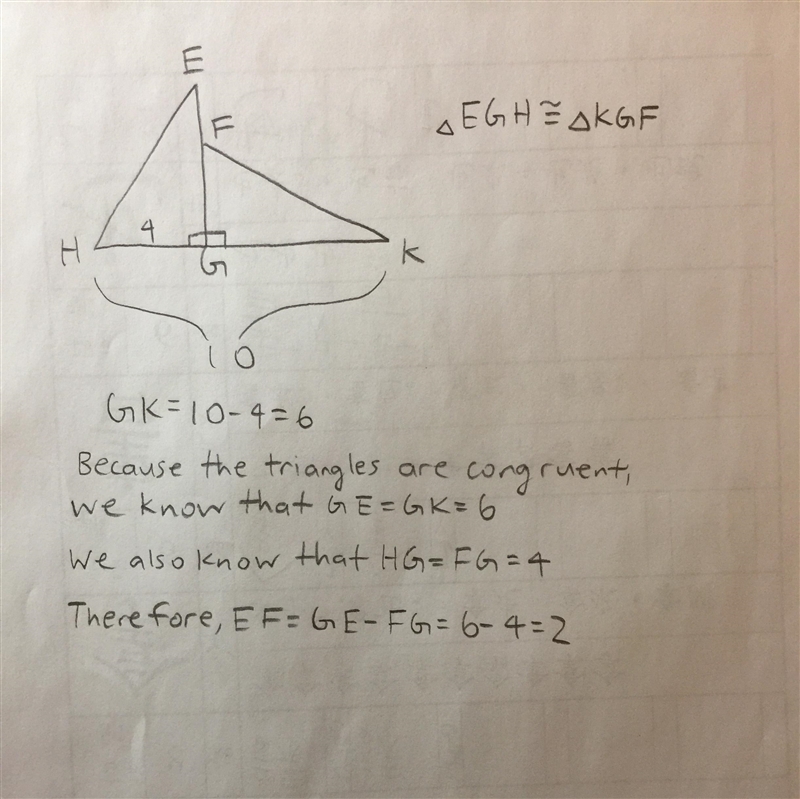 E
F
△EGH≅△KGF
4
H
G
K
10
GK=10-4=6
Because the triangles are congruent,
we know that GE=GK=6
We also know that HG=FG=4
Therefore, EF=GE-FG=6-4=2